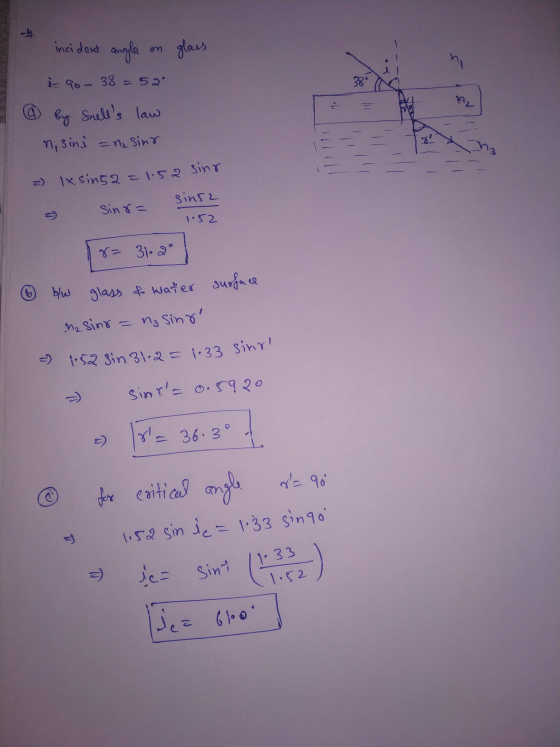 #
incident angle on glass
i = 90 - 38 = 52°
(a) By Snell's law
n₁ sin i = n₂ sin r
⇒ 1 x sin 52 = 1.52 sin r
⇒ sin r = sin 52 / 1.52
r = 31.2°
(b) b/w glass & water surface
n₂ sin r = n₃ sin r'
⇒ 1.52 sin 31.2 = 1.33 sin r'
⇒ sin r' = 0.5920
⇒ r' = 36.3°
(c) for critical angle r' = 90°
⇒ 1.52 sin i_c = 1.33 sin 90°
⇒ i_c = sin⁻¹ (1.33 / 1.52)
i_c = 61.0°
38°
i
n₁
n₂
r'
n₃